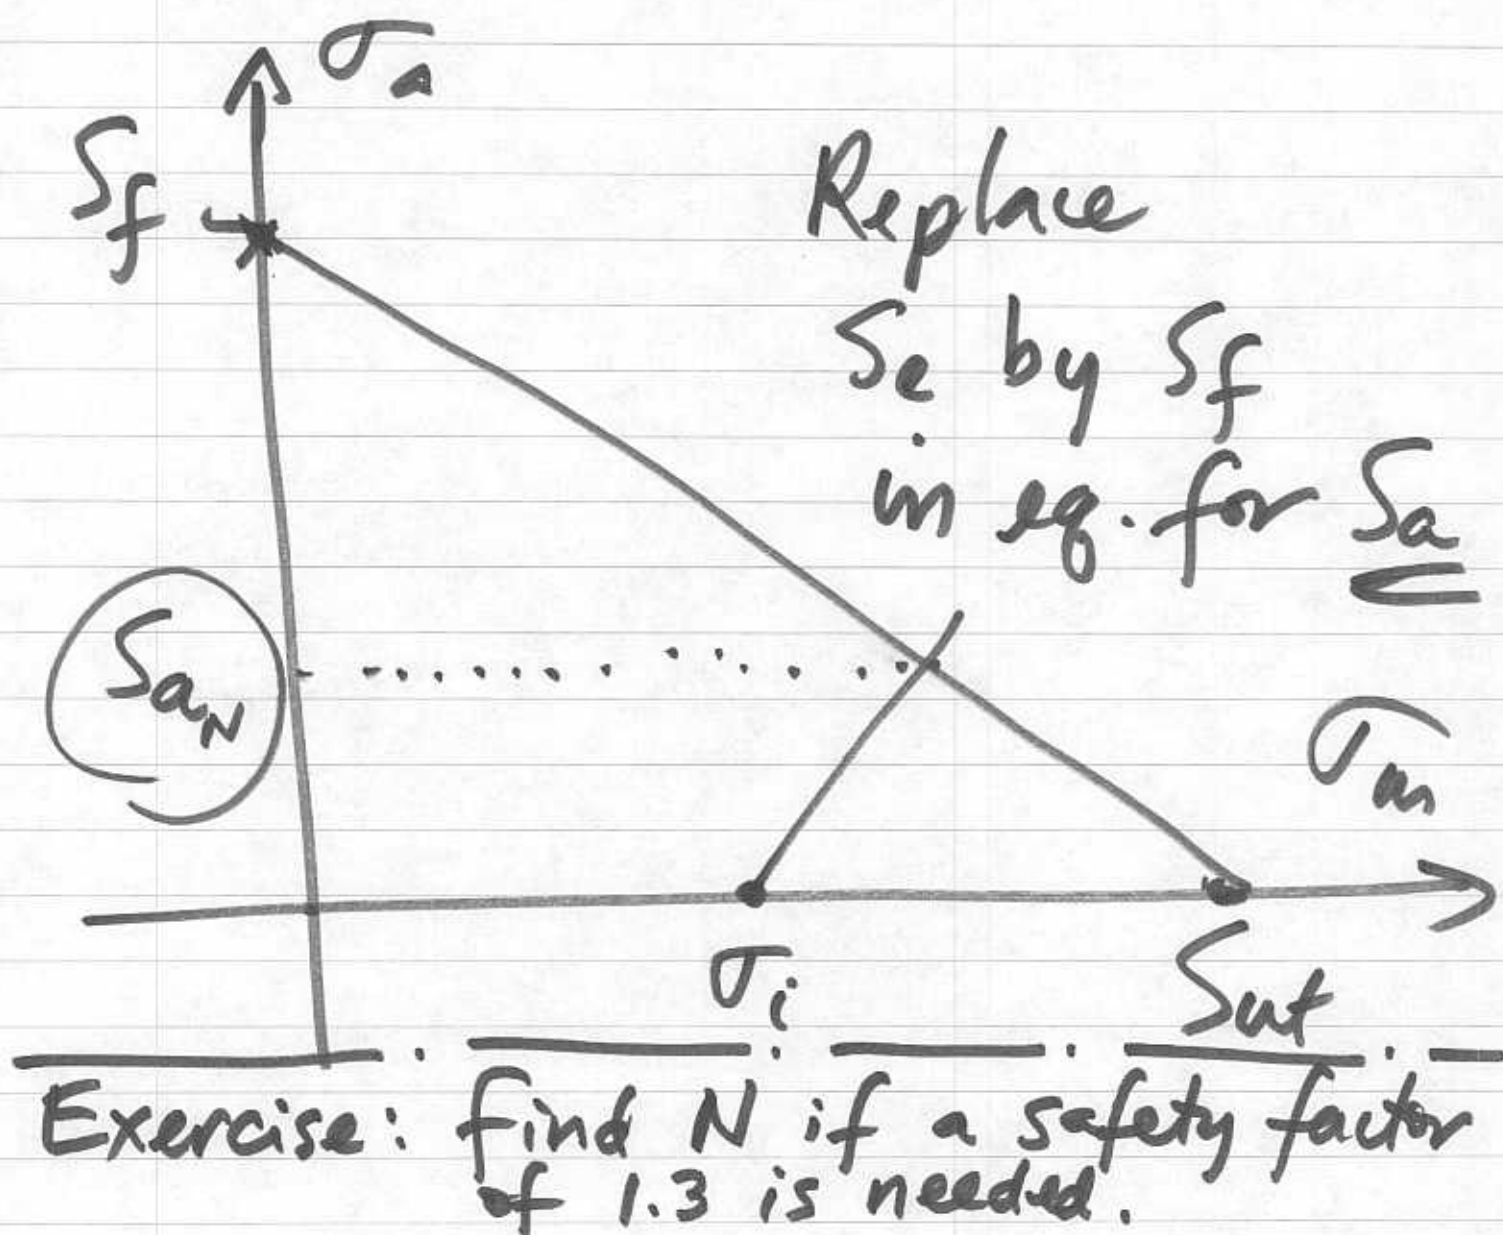 σa
Sf
Replace
Se by Sf
in eq. for Sa
SaN
σm
σi
Sut
Exercise: find N if a safety factor
of 1.3 is needed.